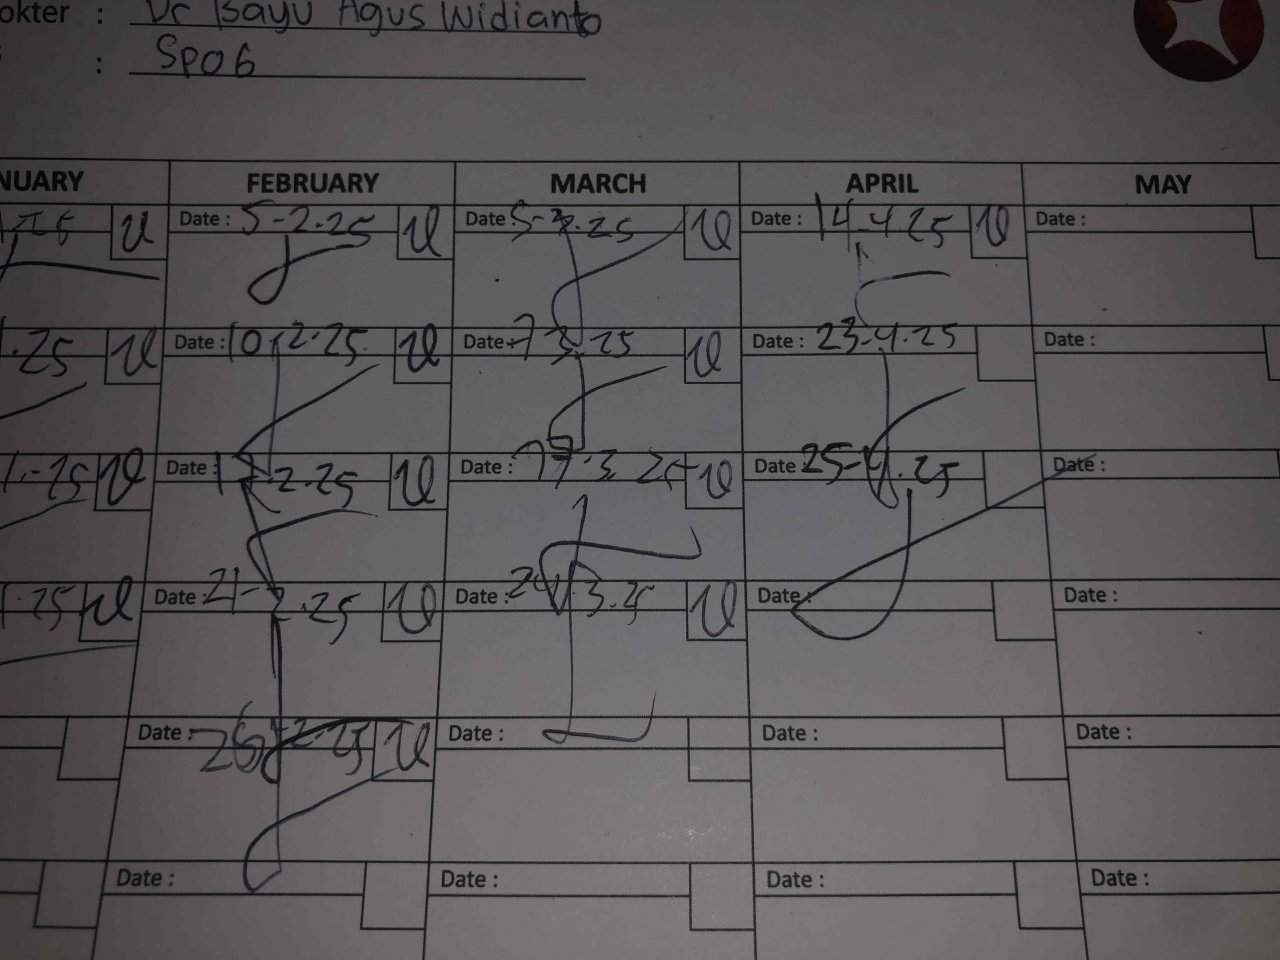 okter : Dr Bayu Agus Widianto
: SpOG
NUARY FEBRUARY MARCH APRIL MAY
Date : 5-2-25 Date : 5-3-25 Date : 14-4-25 Date :
.25 Date : 10-2-25 Date : 7 3-25 Date : 23-4-25 Date :
-25 Date : 17-2-25 Date : 17-3-25 Date 25-4-25 Date :
.25 Date : 21-2-25 Date : 24-3-25 Date : Date :
Date : 26-2-25 Date : Date : Date :
Date : Date : Date : Date :